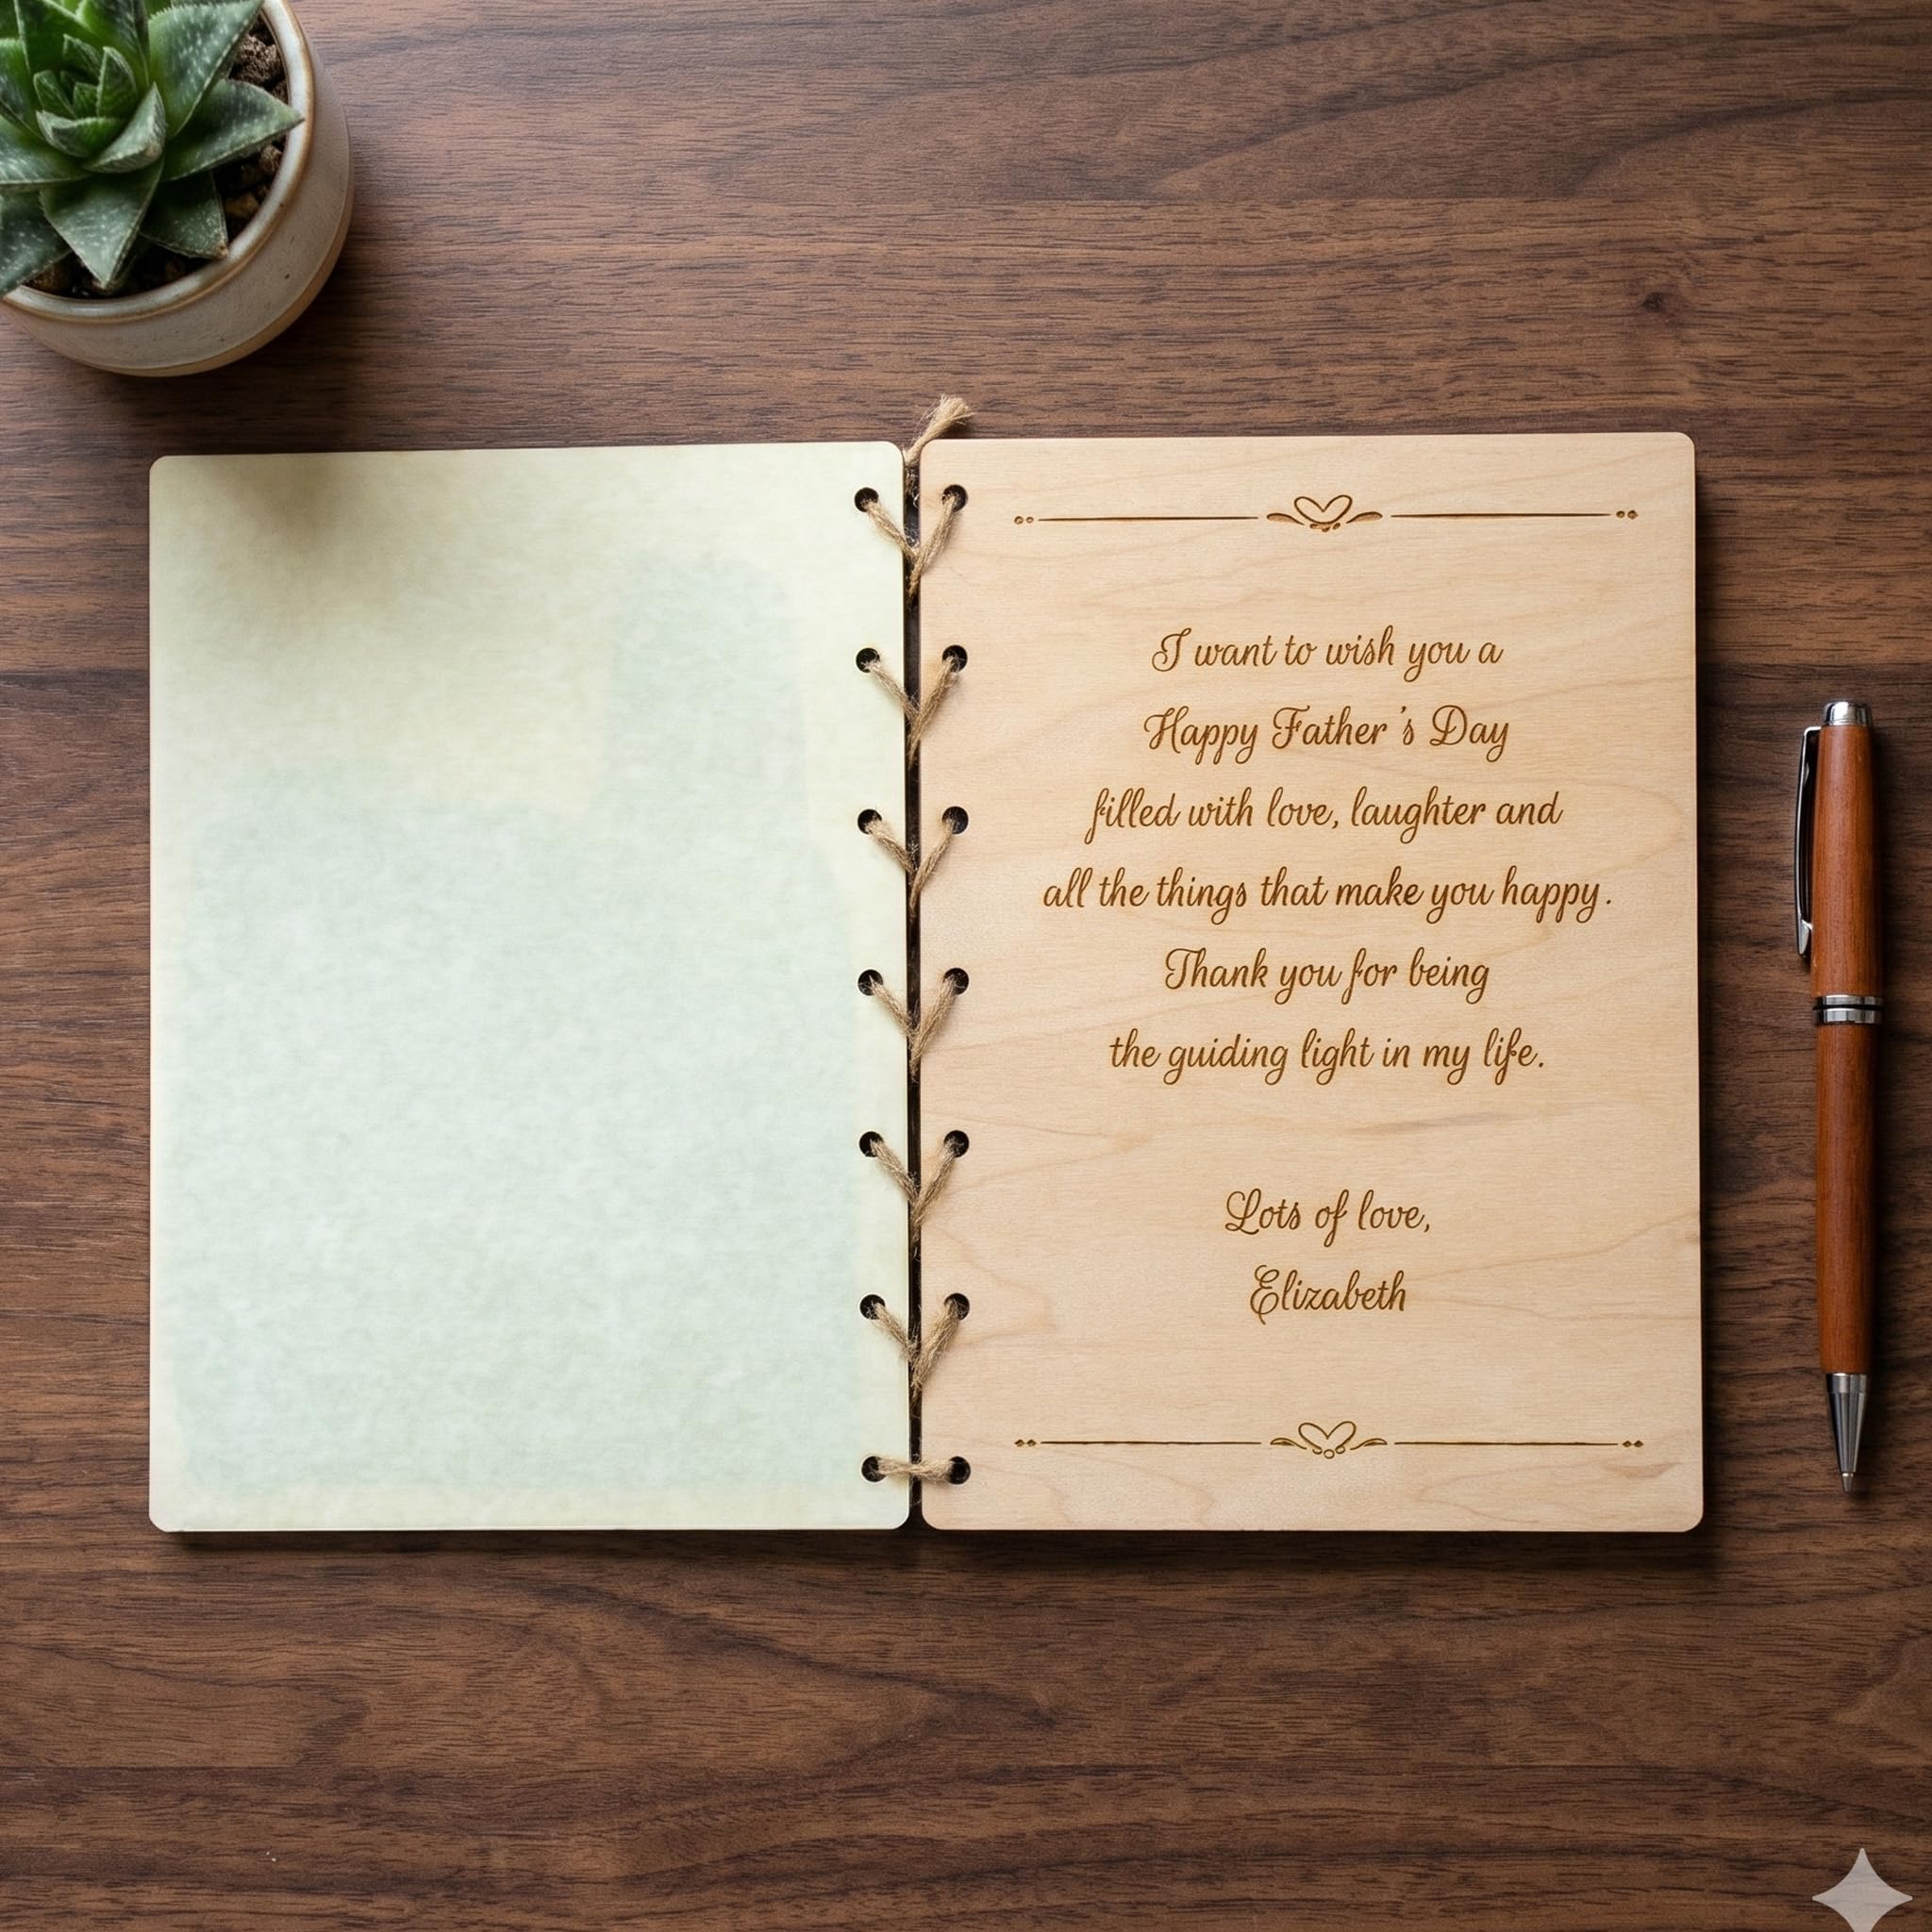 I want to wish you a
Happy Father's Day
filled with love, laughter and
all the things that make you happy.
Thank you for being
the guiding light in my life.
Lots of love,
Elizabeth